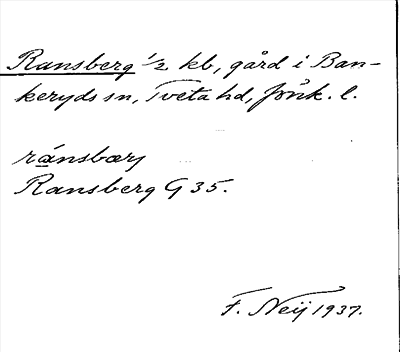 Ransberg 1/2 kb, gård i Ban-
keryds sn, Tveta hd, Jönk. l.
ránsbærj
Ransberg G 35.
F. Neij 1937.